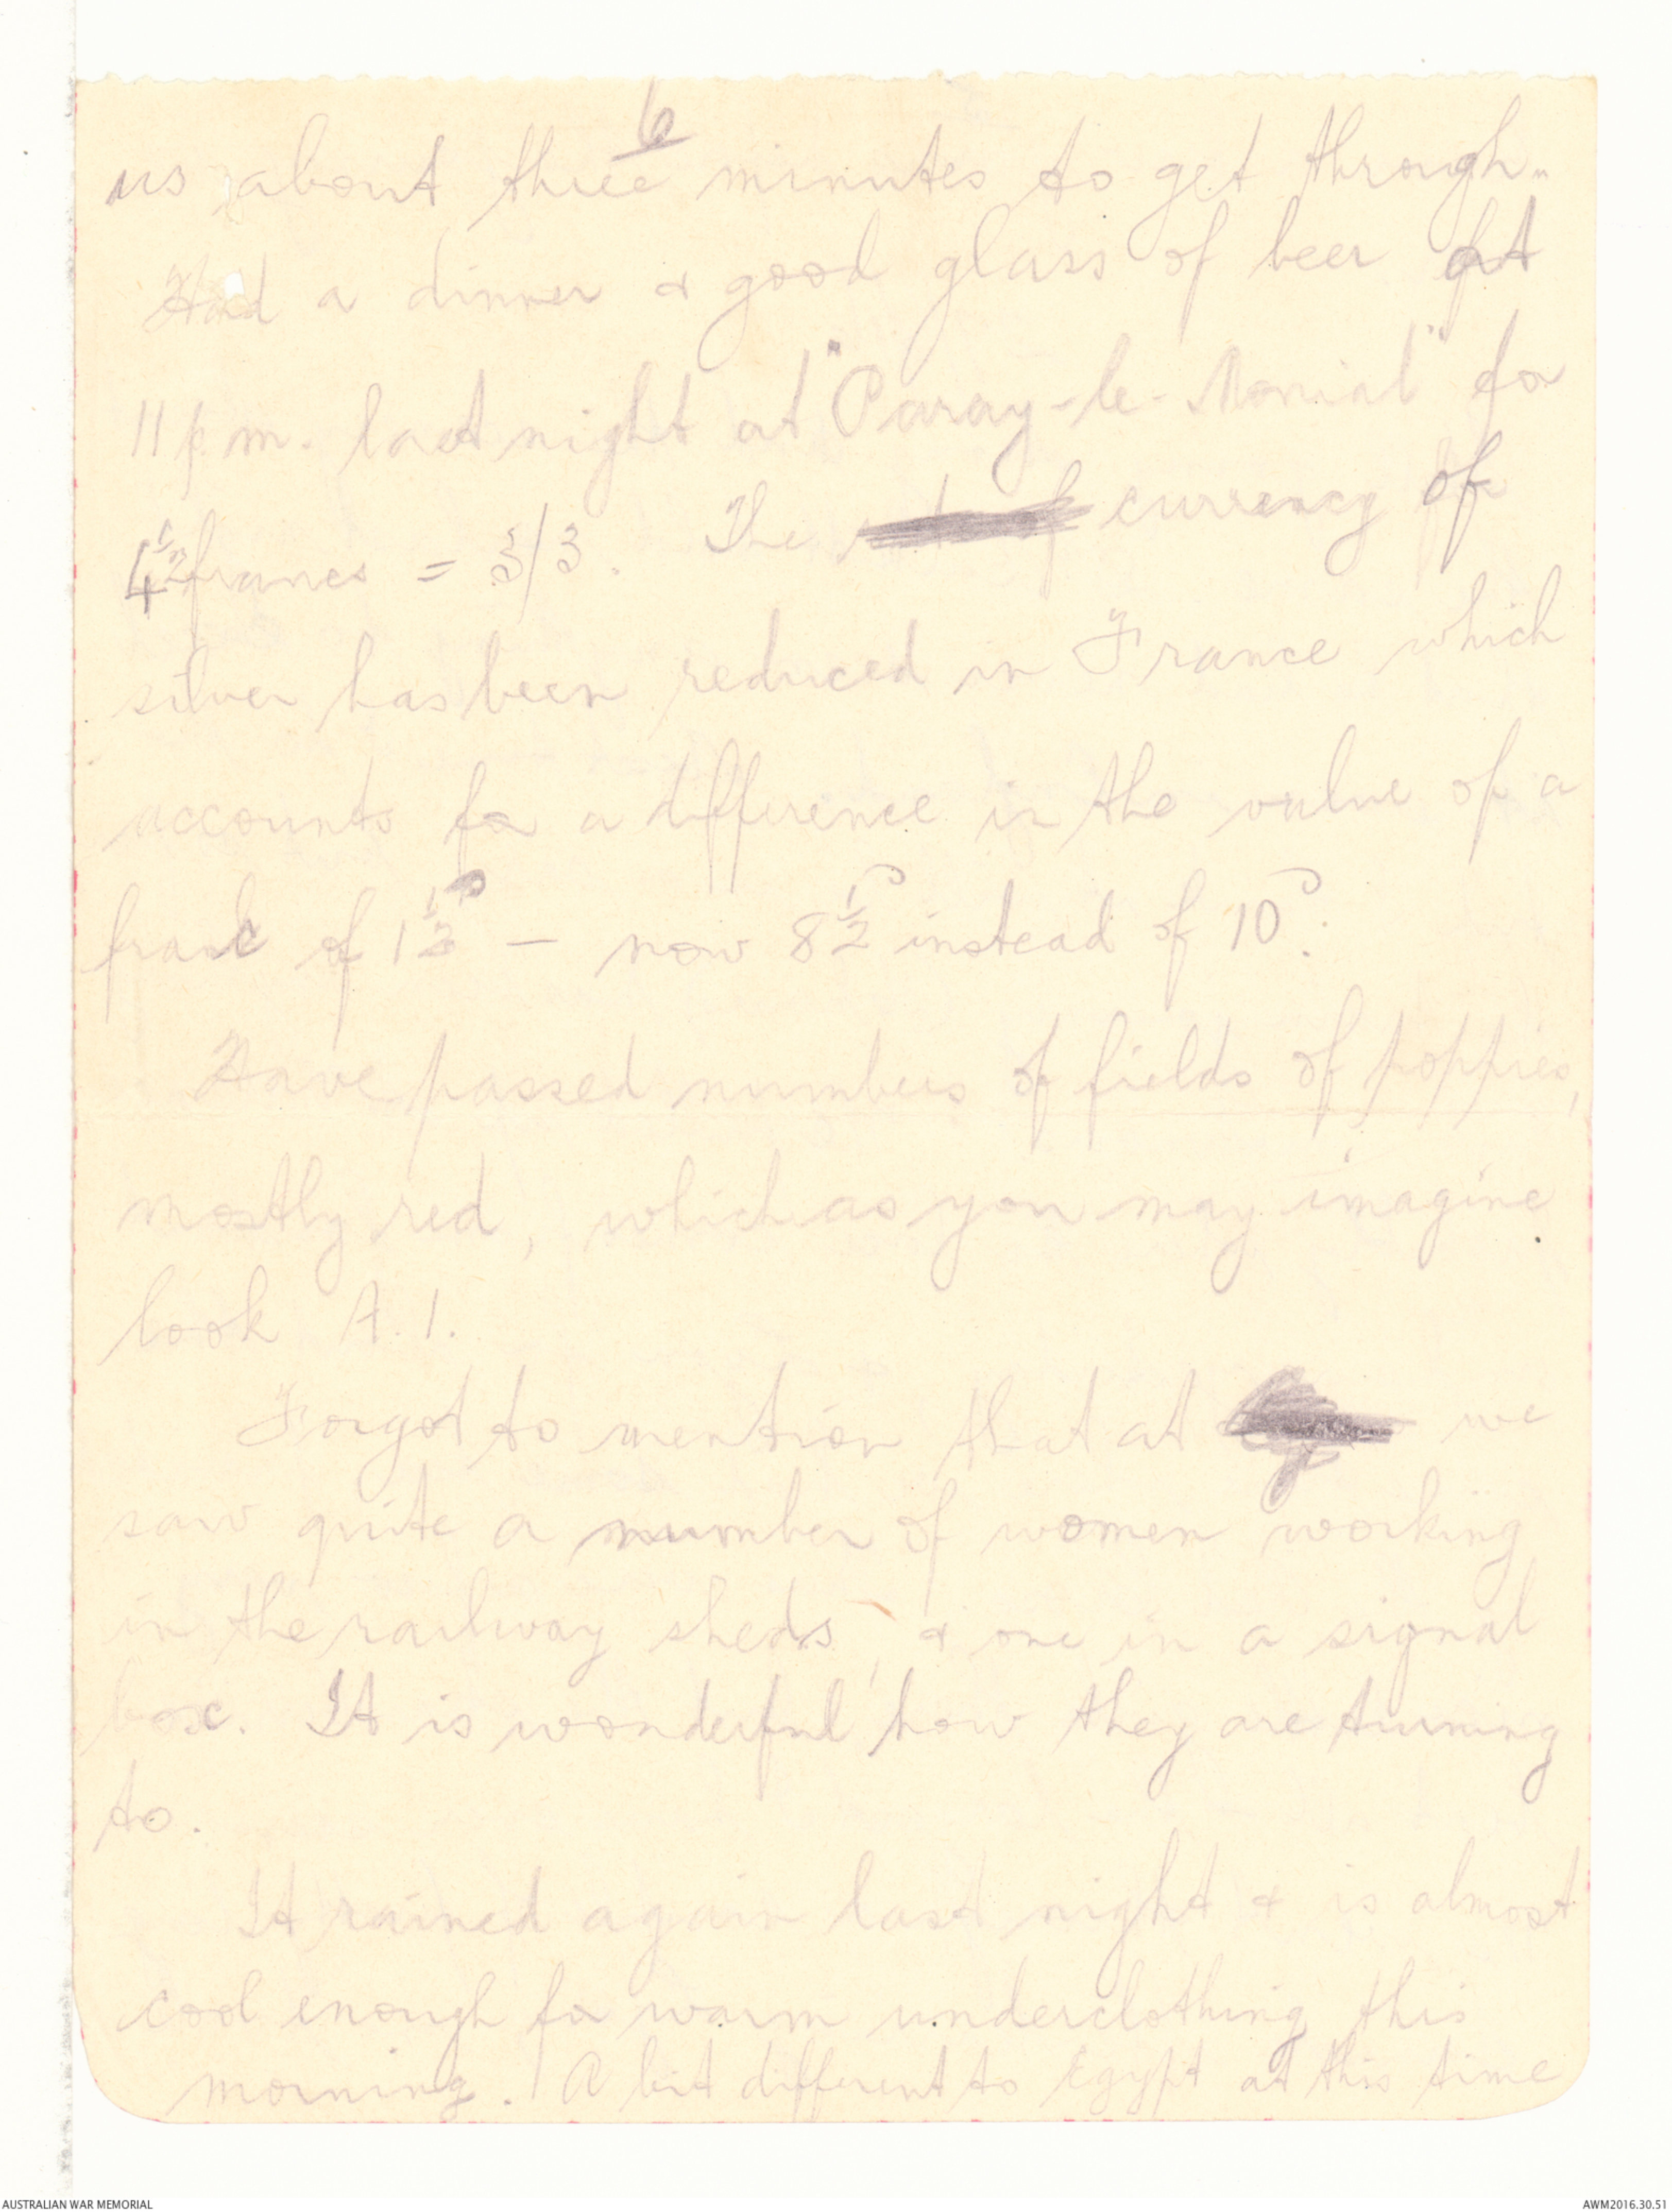 6
us about three minutes to get through.
Had a dinner & good glass of beer at
11 p.m. last night at "Paray-le-Monial" for
4½ francs = 3/3. The currency of
silver has been reduced in France which
accounts for a difference in the value of a
franc of 1½ᴰ — now 8½ᴰ instead of 10ᴰ.
Have passed numbers of fields of poppies,
mostly red, which as you may imagine
look A.1.
Forgot to mention that at we
saw quite a number of women working
in the railway sheds, & one in a signal
box. It is wonderful how they are turning
to.
It rained again last night & is almost
cool enough for warm underclothing this
morning. A bit different to Egypt at this time
AUSTRALIAN WAR MEMORIAL
AWM2016.30.51